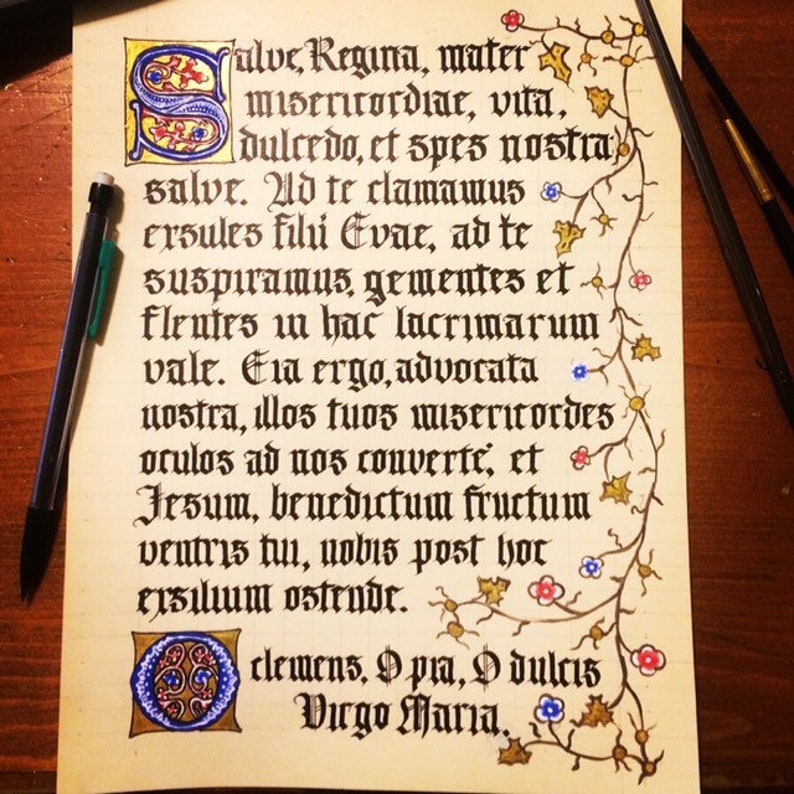 Salve, Regina, mater
misericordiae, vita,
dulcedo, et spes nostra,
salve. Ad te clamamus
exsules filii Evae, ad te
suspiramus, gementes et
flentes in hac lacrimarum
vale. Eia ergo, advocata
nostra, illos tuos misericordes
oculos ad nos converte; et
Jesum, benedictum fructum
ventris tui, nobis post hoc
exsilium ostende.
O clemens, O pia, O dulcis
Virgo Maria.